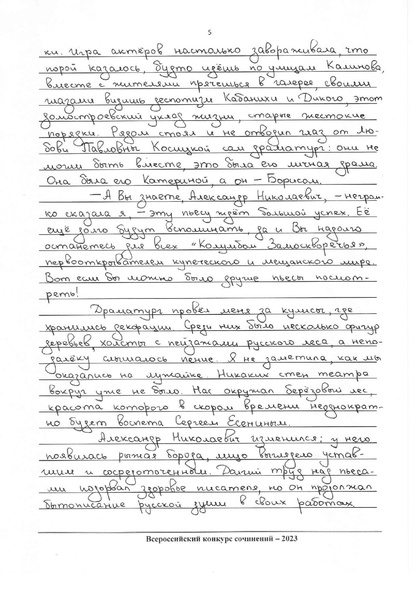 5
ки. Игра актёров настолько завораживала, что
порой казалось, будто идёшь по улицам Калинова,
вместе с жителями прячешься в галерее, своими
глазами видишь деспотизм Кабанихи и Дикого, этот
домостроевский уклад жизни, старые жестокие
порядки. Рядом стоял и не отводил глаз от Лю-
бови Павловны Косицкой сам драматург: они не
могли быть вместе, это была его личная драма.
Она была его Катериной, а он – Борисом.
– А Вы знаете, Александр Николаевич, – негром-
ко сказала я, – эту пьесу ждёт большой успех. Её
ещё долго будут вспоминать, да и Вы надолго
останетесь для всех "Колумбом Замоскворечья",
первооткрывателем купеческого и мещанского мира.
Вот если бы можно было другие пьесы посмот-
реть!
Драматург провёл меня за кулисы, где
хранились декорации. Среди них было несколько фигур
деревьев, холсты с пейзажами русского леса, а непо-
далёку слышалось пение. Я не заметила, как мы
оказались на лужайке. Никаких стен театра
вокруг уже не было. Нас окружал берёзовый лес,
красота которого в скором времени неоднократ-
но будет воспета Сергеем Есениным.
Александр Николаевич изменился; у него
появилась рыжая борода, лицо выглядело устав-
шим и сосредоточенным. Долгий труд над пьеса-
ми подорвал здоровье писателя, но он продолжал
бытописание русской души в своих работах,
Всероссийский конкурс сочинений – 2023